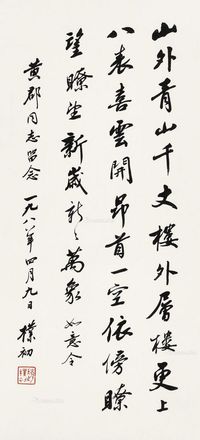 山外青山千丈樓外層樓更上
八表喜雲開昂首一空依傍瞭
望瞭望新歲新新萬象 如意令
黄郡同志留念
一九八八年四月九日 樸初